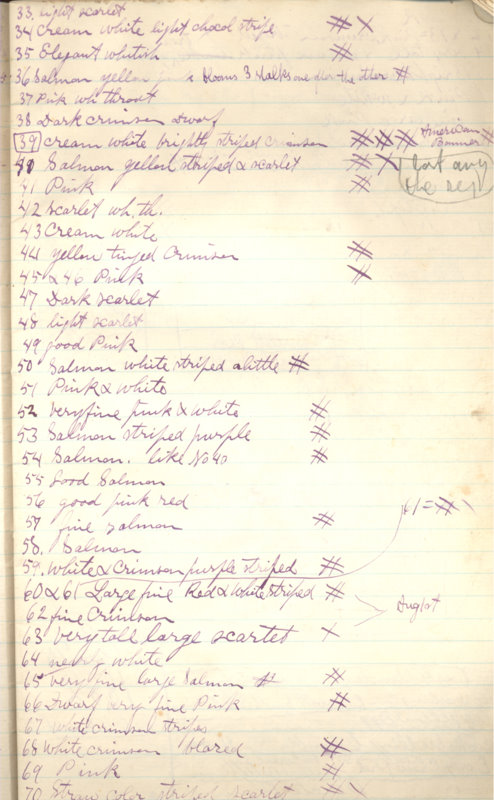 33. light scarlet
34 Cream white light chocol stripe # X
35 Elegant whitish #
36 Salmon yellow blooms 3 stalks one after the other #
37 Pink wh throat
38 Dark crimson Dwarf
39 cream white brightly striped crimson # # # American Banner #
40 Salmon yellow striped & scarlet # X lost any
41 Pink # the
42 scarlet wh. th.
43 Cream white
44 yellow tinged Crimson #
45 & 46 Pink #
47 Dark scarlet
48 light scarlet
49 good Pink
50 Salmon white striped alittle #
51 Pink & white
52 very fine Pink & white #
53 Salmon striped purple #
54 Salmon. like No 40 #
55 Good Salmon
56 good pink red
57 fine salmon #
58. Salmon
59. White & Crimson purple striped #
60 & 61 Large fine Red & White striped #
62 fine Crimson
63 very tall large scarlet X
64 nearly white
65 very fine large Salmon # #
66 Dwarf very fine Pink #
67 white crimson stripes
68 White crimson blazed #
69 Pink #
70 Straw color striped scarlet # X